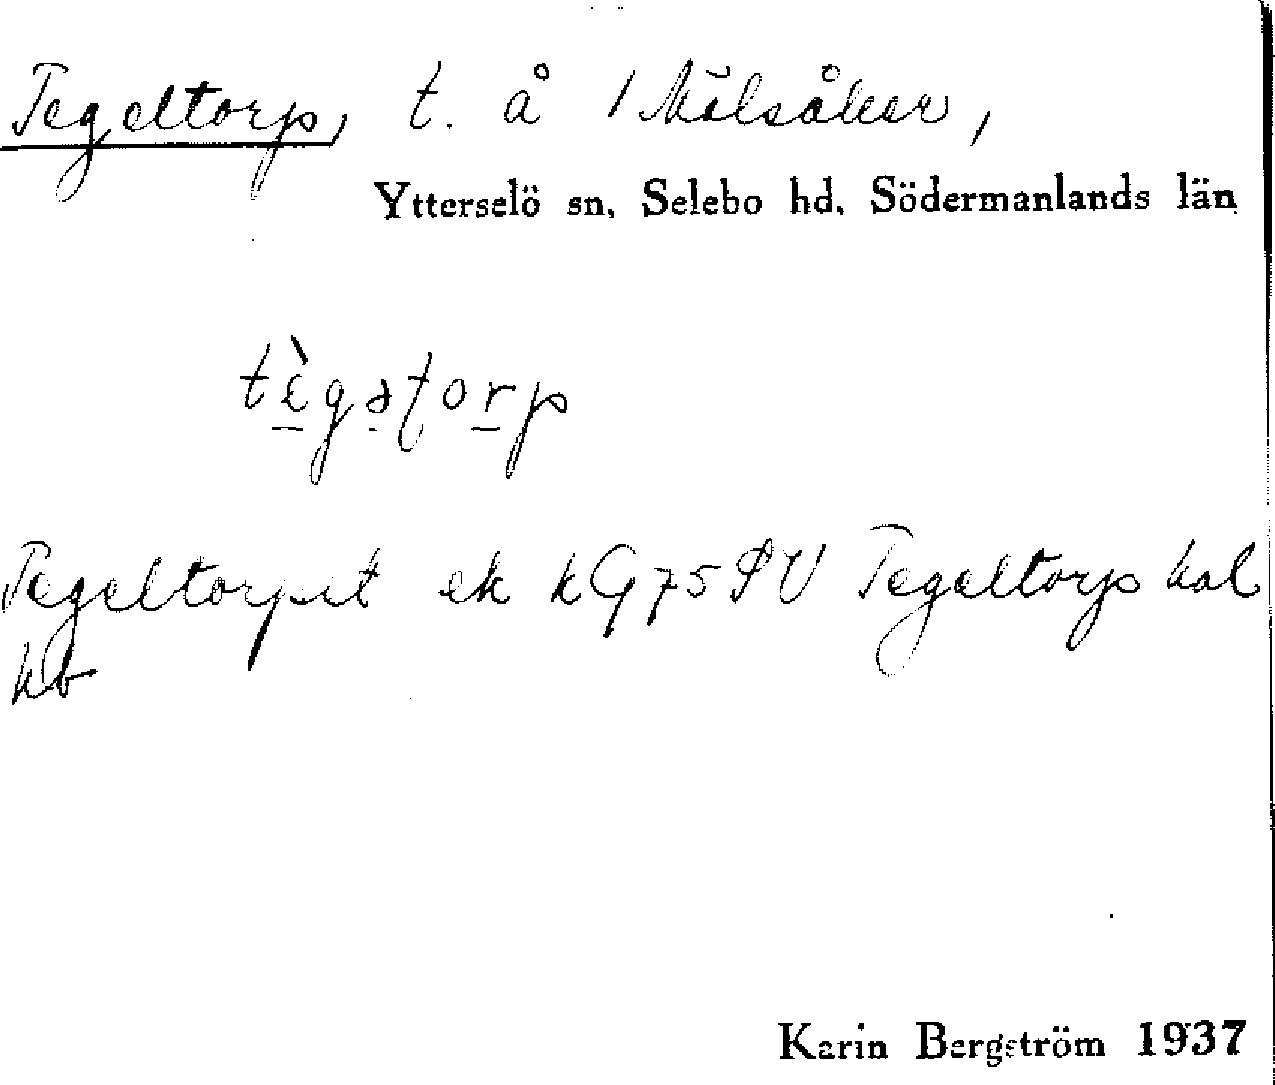 Tegeltorp, t. å 1 Mälsåker,
Ytterselö sn, Selebo hd, Södermanlands län
Tegeltorpet ek Tegeltorps hal
hb
Karin Bergström 1937